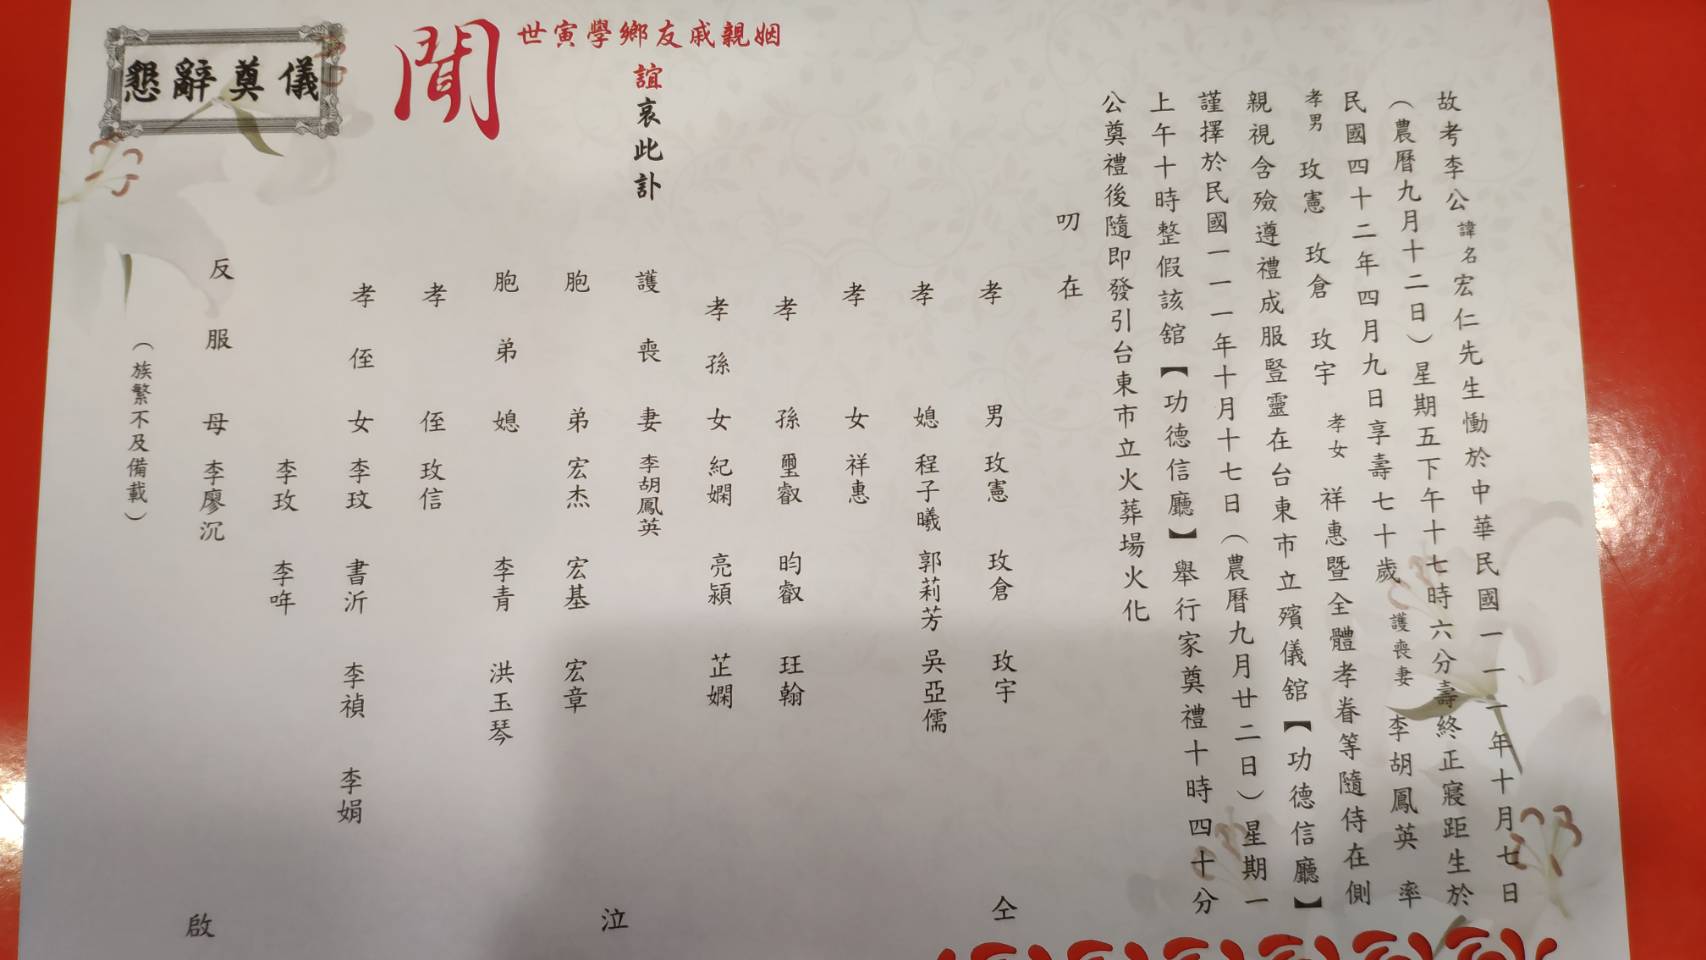 故考李公諱名宏仁先生慟於中華民國一一一年十月七日
（農曆九月十二日）星期五下午十七時六分壽終正寢距生於
民國四十二年四月九日享壽七十歲護喪妻李胡鳳英率
孝男玫憲玫倉玫宇孝女祥惠暨全體孝眷等隨侍在側
親視含殮遵禮成服豎靈在台東市立殯儀舘【功德信廳】
謹擇於民國一一一年十月十七日（農曆九月廿二日）星期一
上午十時整假該舘【功德信廳】舉行家奠禮十時四十分
公奠禮後隨即發引台東市立火葬場火化
叨在
孝男 玫憲 玫倉 玫宇 仝
孝媳 程子曦 郭莉芳 吳亞儒
孝女 祥惠
孝孫 璽叡 昀叡 玨翰
孝孫女 紀嫻 亮潁 芷嫻
姻親戚友鄉學寅世誼哀此訃
聞
護喪妻 李胡鳳英 泣
胞弟 宏杰 宏基 宏章
胞弟媳 李青 洪玉琴
孝侄 玫信
孝侄女 李玟 書沂 李禎 李娟
李玫 李哖
反服母 李廖沉 啟
（族繁不及備載）
懇辭奠儀